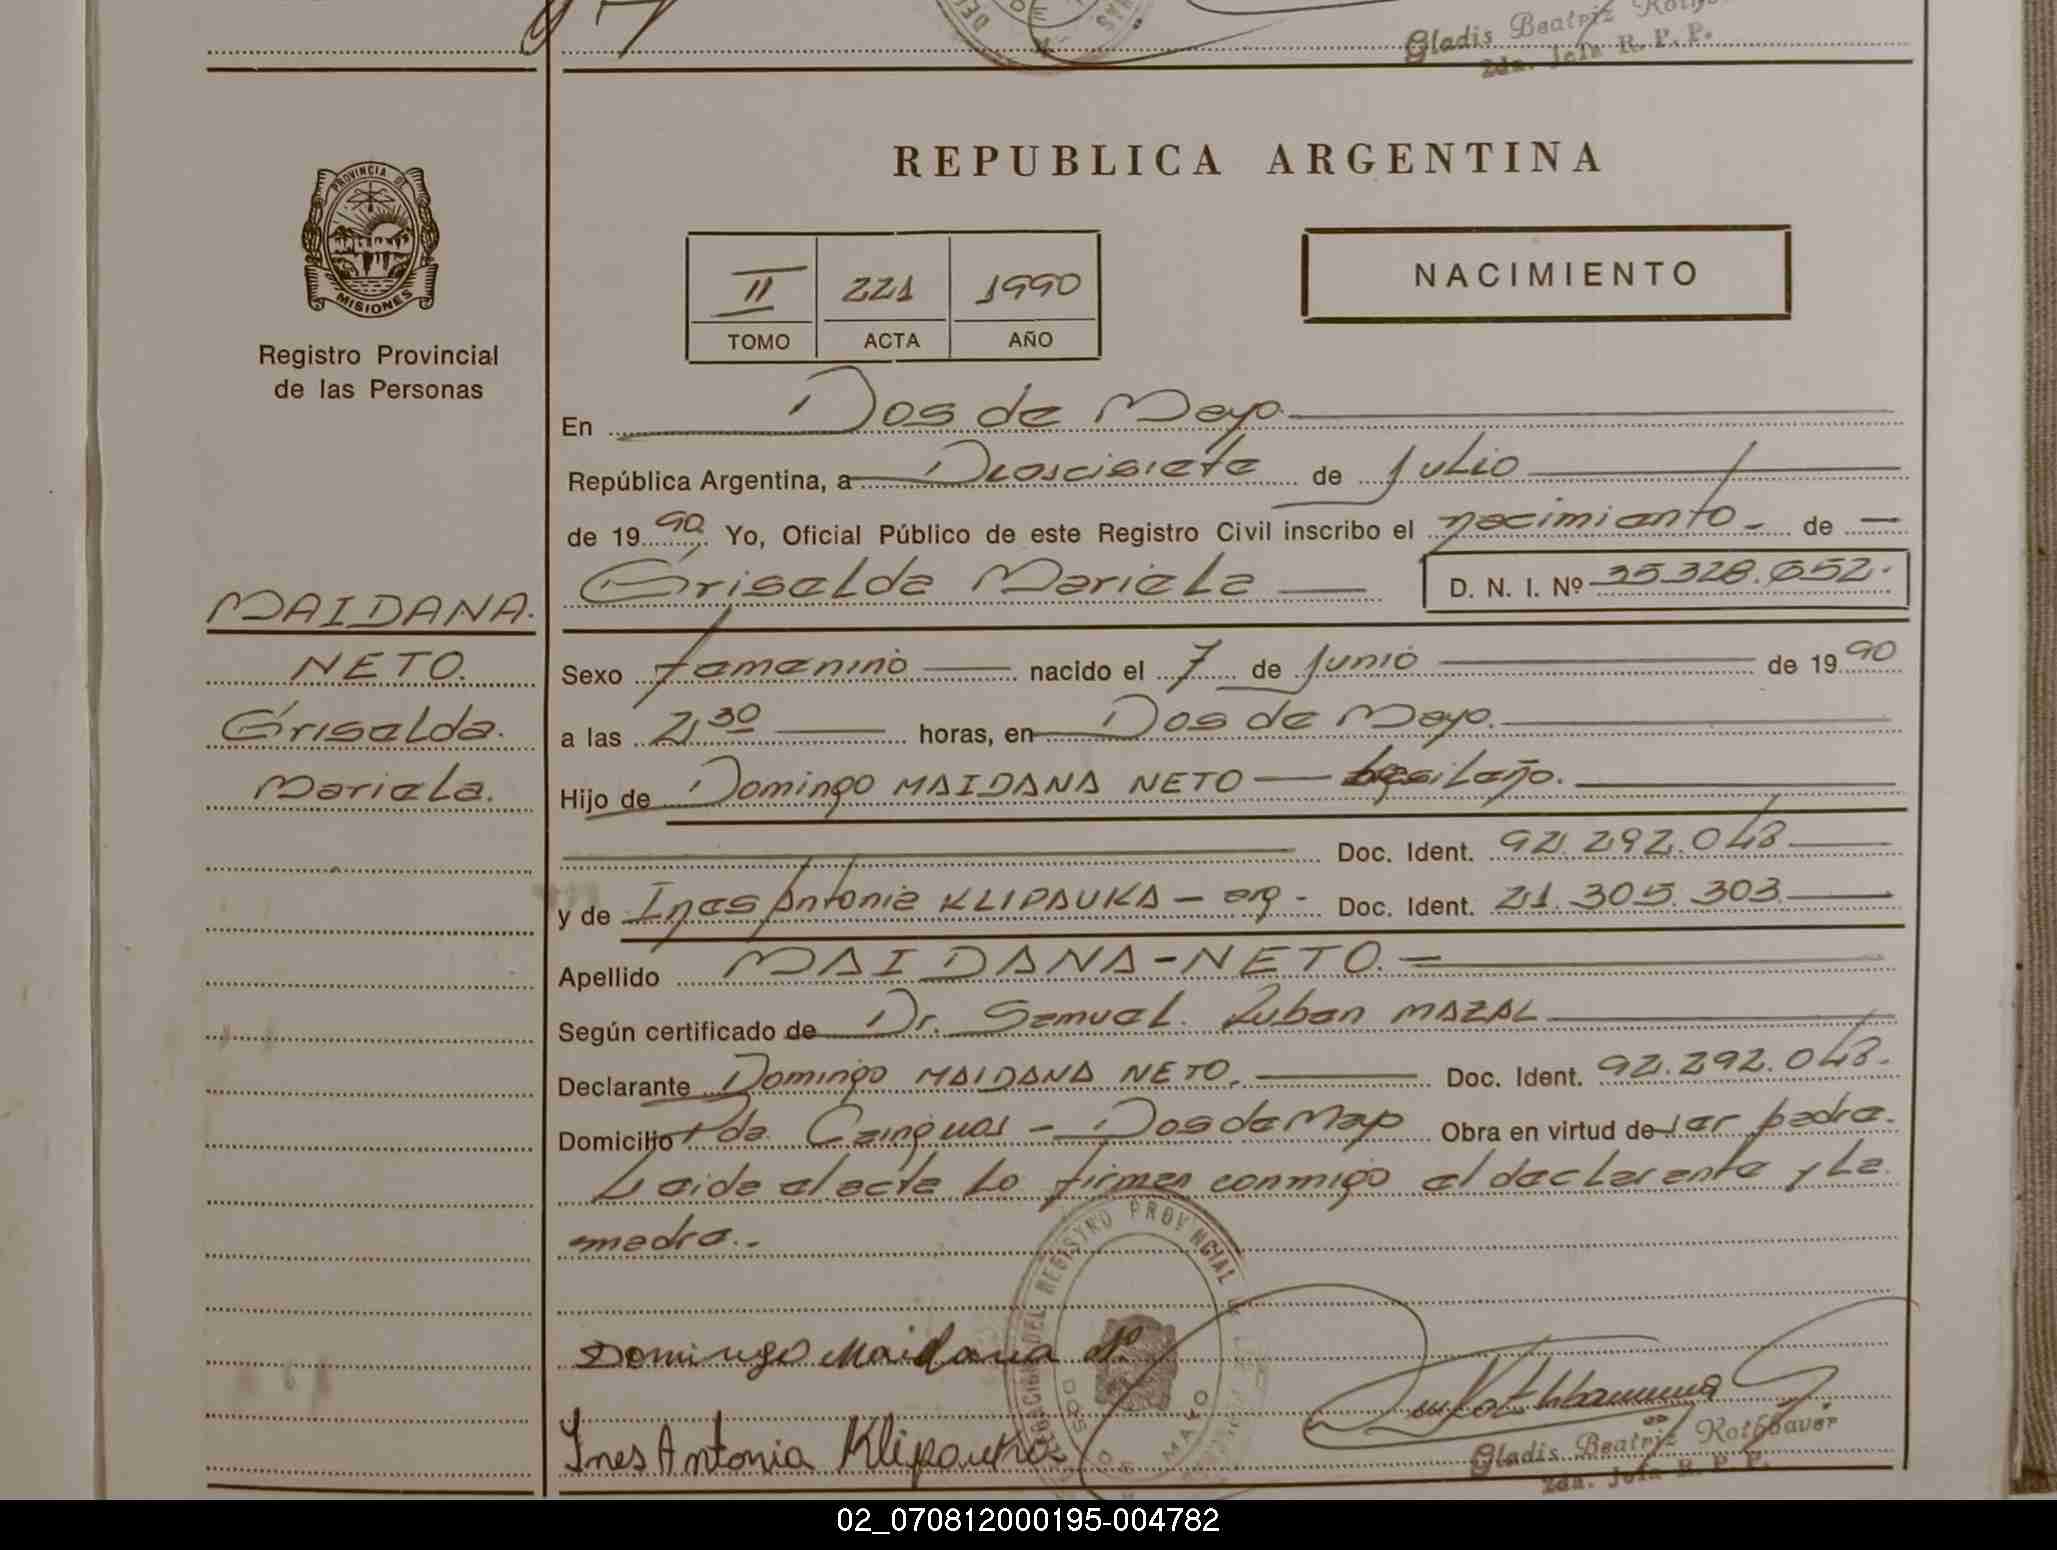 Gladis Beatriz
2da. Jefa R. P. P.
REPUBLICA ARGENTINA
PROVINCIA DE
MISIONES
Registro Provincial
de las Personas
II 221 1990
TOMO ACTA AÑO
NACIMIENTO
En Dos de Mayo
República Argentina, a Dioscisiete de Julio
de 19 90 Yo, Oficial Público de este Registro Civil inscribo el nacimiento de
Griselda Mariela D. N. I. Nº 35.328.652.
MAIDANA
NETO.
Griselda.
Mariela.
Sexo femenino nacido el 7 de Junio de 19 90
a las 21,30 horas, en Dos de Mayo.
Hijo de Domingo MAIDANA NETO — brasileño.
Doc. Ident. 92.292.048
y de Ines Antonia KLIPAUKA - arg - Doc. Ident. 21.305.303
Apellido MAIDANA-NETO.
Según certificado de Dr. Samuel Ruben MAZAL
Declarante Domingo MAIDANA NETO. Doc. Ident. 92.292.048.
Domicilio Pda. Cainguas - Dos de Mayo Obra en virtud de ser padre.
Leida el acta lo firman conmigo el declarante y la
madre.-
REGISTRO PROVINCIAL
DOS DE MAYO
Domingo Maidana
Ines Antonia Klipauka
Gladis Beatriz Rothbauer
2da. Jefa R. P. P.
02_070812000195-004782